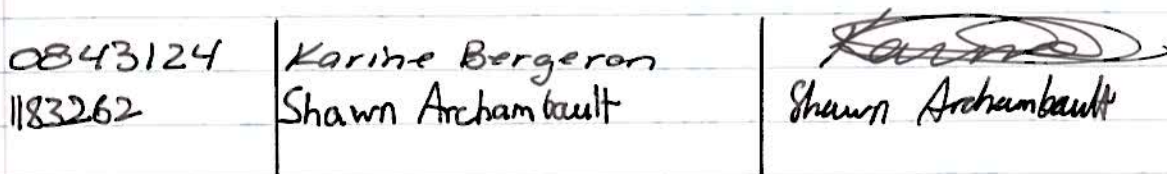 0843124 Karine Bergeron Karine
1183262 Shawn Archambault Shawn Archambault